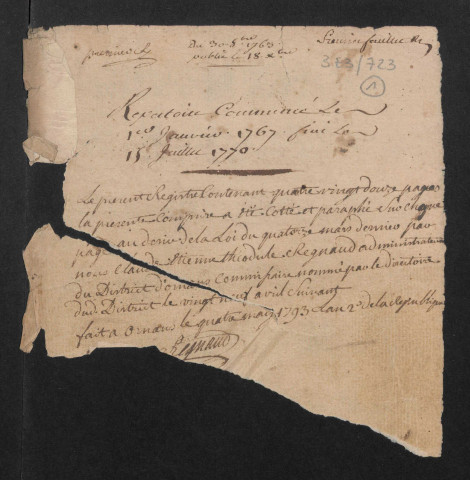 premier
Du 3 1763
publié le 18 xbre
Premier feuillet
383/723
1
Repertoire Commencé Le
1er Janvier 1767 fini Le
15 Juillet 1770
Le present Registre Contenant quatre vingt douze pages
la presente Comprise a été Cotté et paraphé sur chaque
page au desir de la Loi du quatorze mars dernier par
nous Claude Etienne Théodule Regnaud administrateur
du District d'ornans Commissaire nommé par le directoire
dud District le vingt neuf avril suivant
fait a ornans le quatre mai 1793 L'an 2e de la Republique
Regnaud